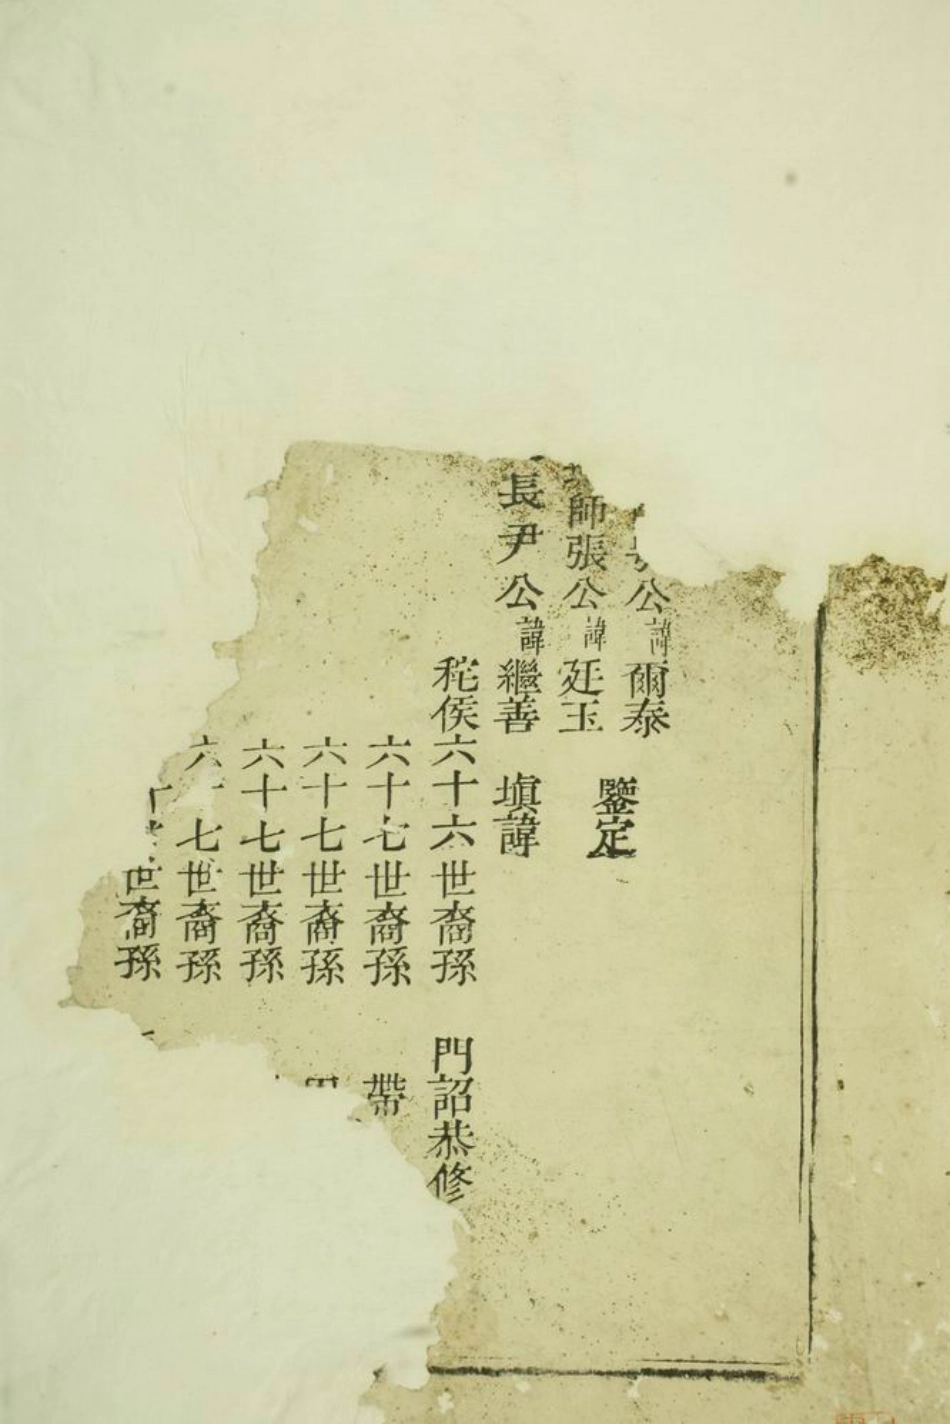 公諱爾泰
鑒定
師張公諱廷玉
長尹公諱繼善 填諱
秺侯六十六世裔孫 門詔恭修
六十七世裔孫 帶
六十七世裔孫
六十七世裔孫
六十七世裔孫
世裔孫